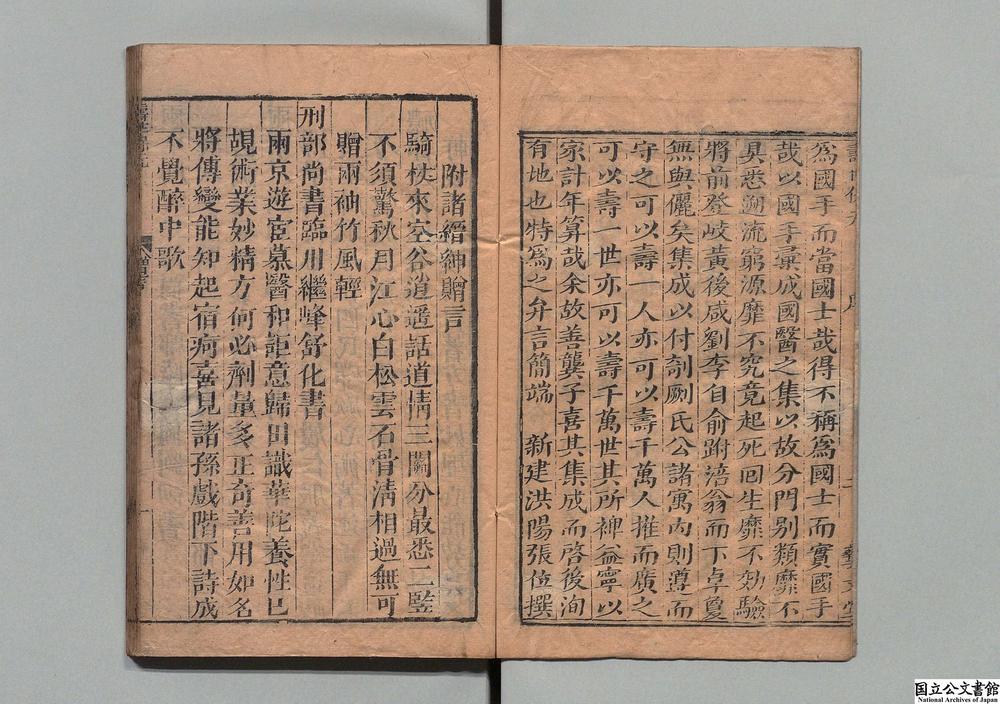 為國手而當國士哉得不稱為國士而實國手
哉以國手彙成國醫之集以故分門别類靡不
具悉遡流窮源靡不究竟起死回生靡不効驗
將前登岐黃後咸劉李自俞跗涪翁而下卓敻
無與儷矣集成以付剞劂氏公諸寓內則遵而
守之可以壽一人亦可以壽千萬人推而廣之
可以壽一世亦可以壽千萬世其所裨益寧以
家計年算哉余故善龔子喜其集成而啓後洵
有地也特為之弁言簡端 新建洪陽張位撰
藝文堂
附諸縉紳贈言
騎杖來空谷逍遥話道情三關分最悉二竪
不須驚秋月江心白松雲石骨淸相過無可
贈兩袖竹風輕
刑部尚書臨川繼峰舒化書
兩京遊宦慕醫和詎意歸田識華陀養性已
覘術業妙精方何必劑量多正奇善用如名
將傳變能知起宿痾喜見諸孫戲階下詩成
不覺醉中歌
国立公文書館
National Archives of Japan